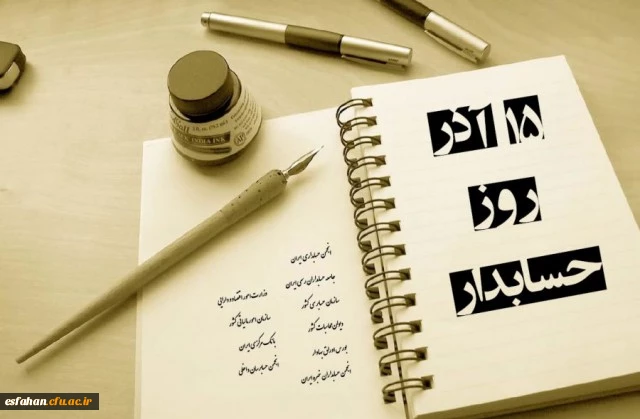 ۱۵ آذر
روز
حسابدار
انجمن حسابداری ایران
جامعه حسابداران رسمی ایران
سازمان حسابرسی کشور
دیوان محاسبات کشور
بورس اوراق بهادار
انجمن حسابداران خبره ایران
وزارت امور اقتصاد و دارایی
سازمان امور مالیاتی کشور
بانک مرکزی ایران
انجمن حسابرسان داخلی
INDIA INK
esfahan.cfu.ac.ir